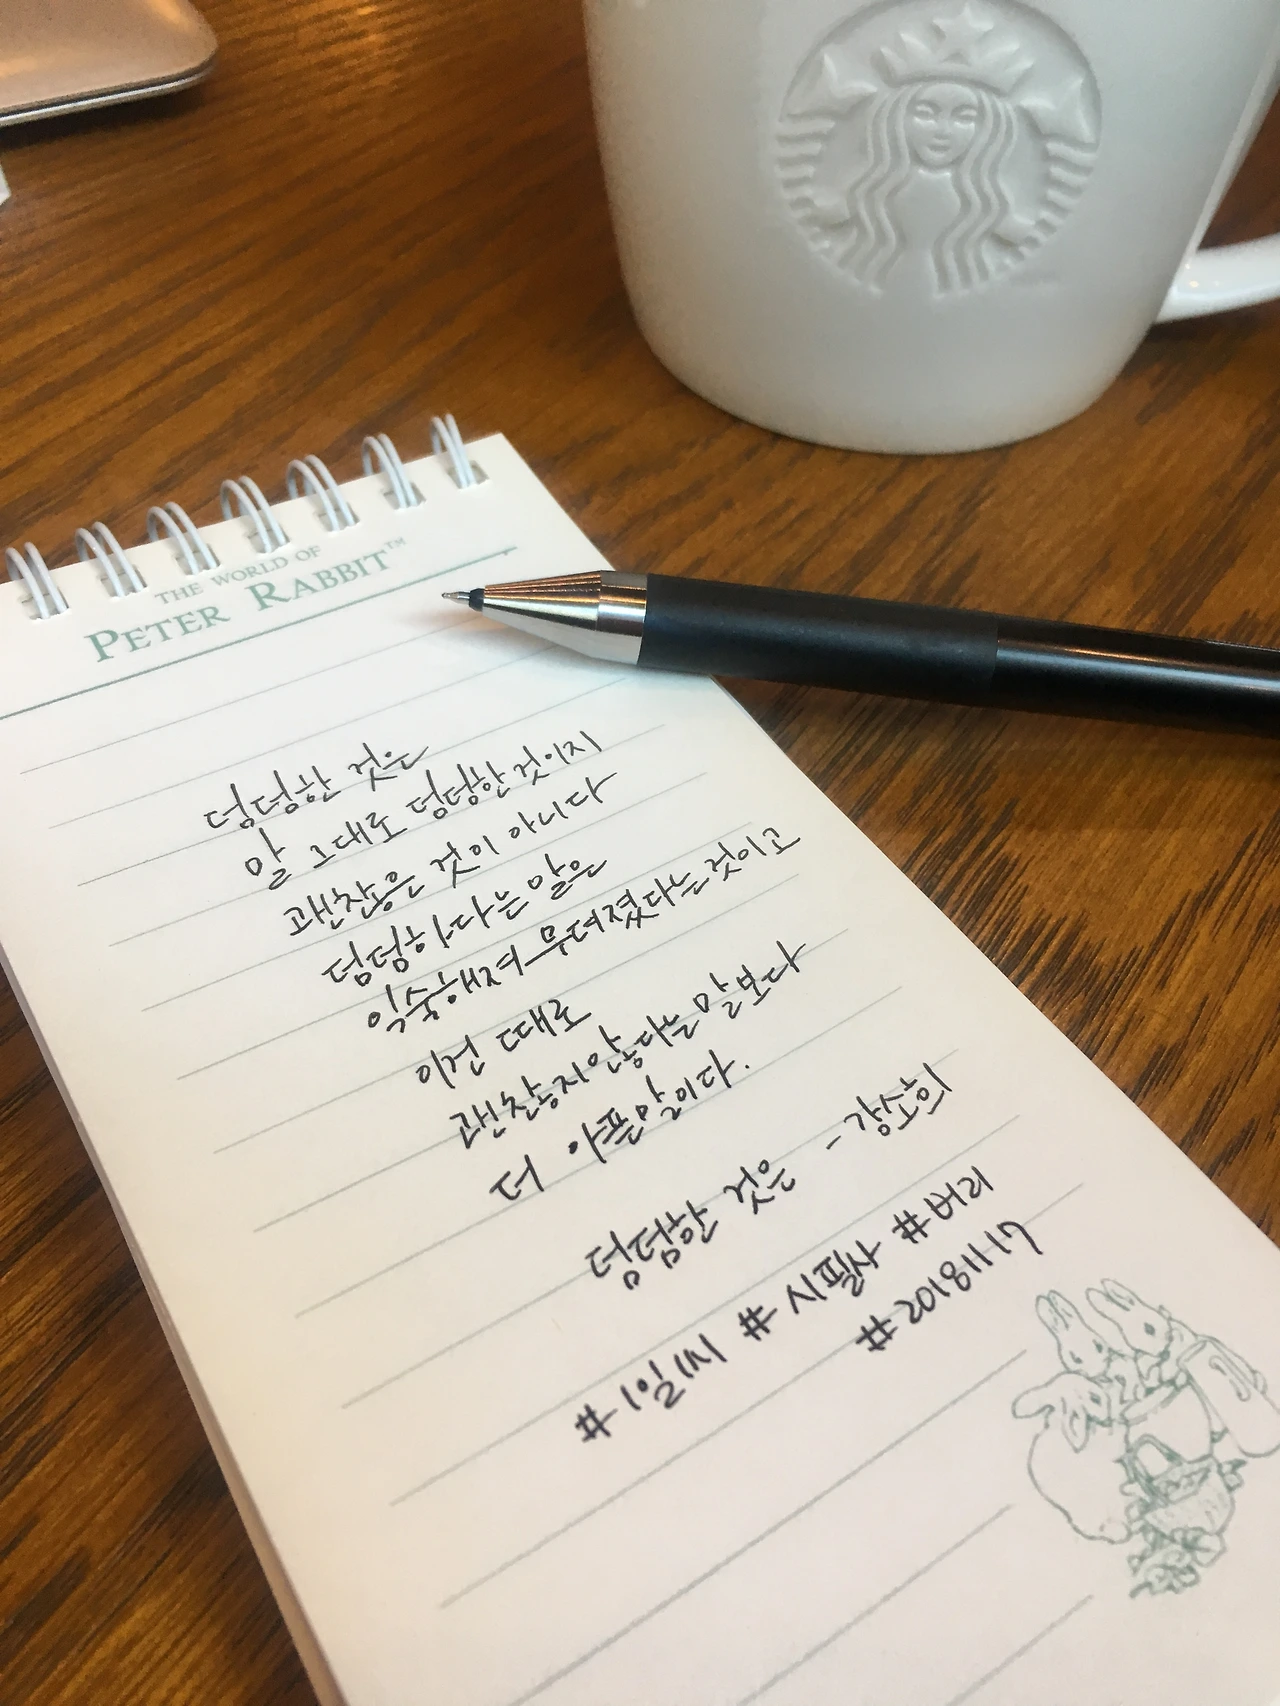 THE WORLD OF
PETER RABBIT™
덤덤한 것은
말 그대로 덤덤한 것이지
괜찮은 것이 아니다
덤덤하다는 말은
익숙해져 무뎌졌다는 것이고
이건 그대로
괜찮지 않다는 말보다
더 아픈 말이다.
덤덤한 것은 - 강소희
#1일1씨 #시필사 #버리
#20181117